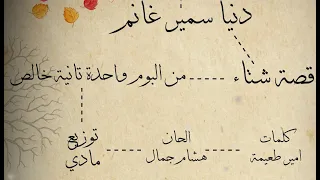 دنيا سمير غانم
قصة شتاء ----- من البوم واحدة تانية خالص
كلمات
امير طعيمة
الحان
هشام جمال
توزيع
مادي